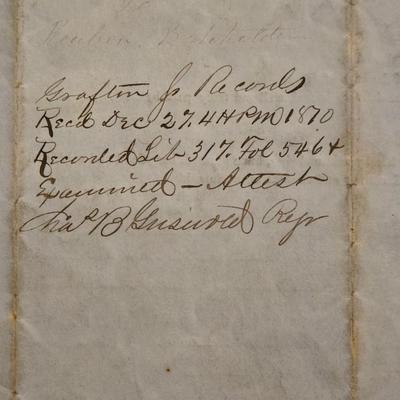 Grafton Ss Records
Recd Dec 27. 4H PM 1870
Recorded Lib 317. Fol 546 &
Examined – Attest
Chas B Griswold Regr